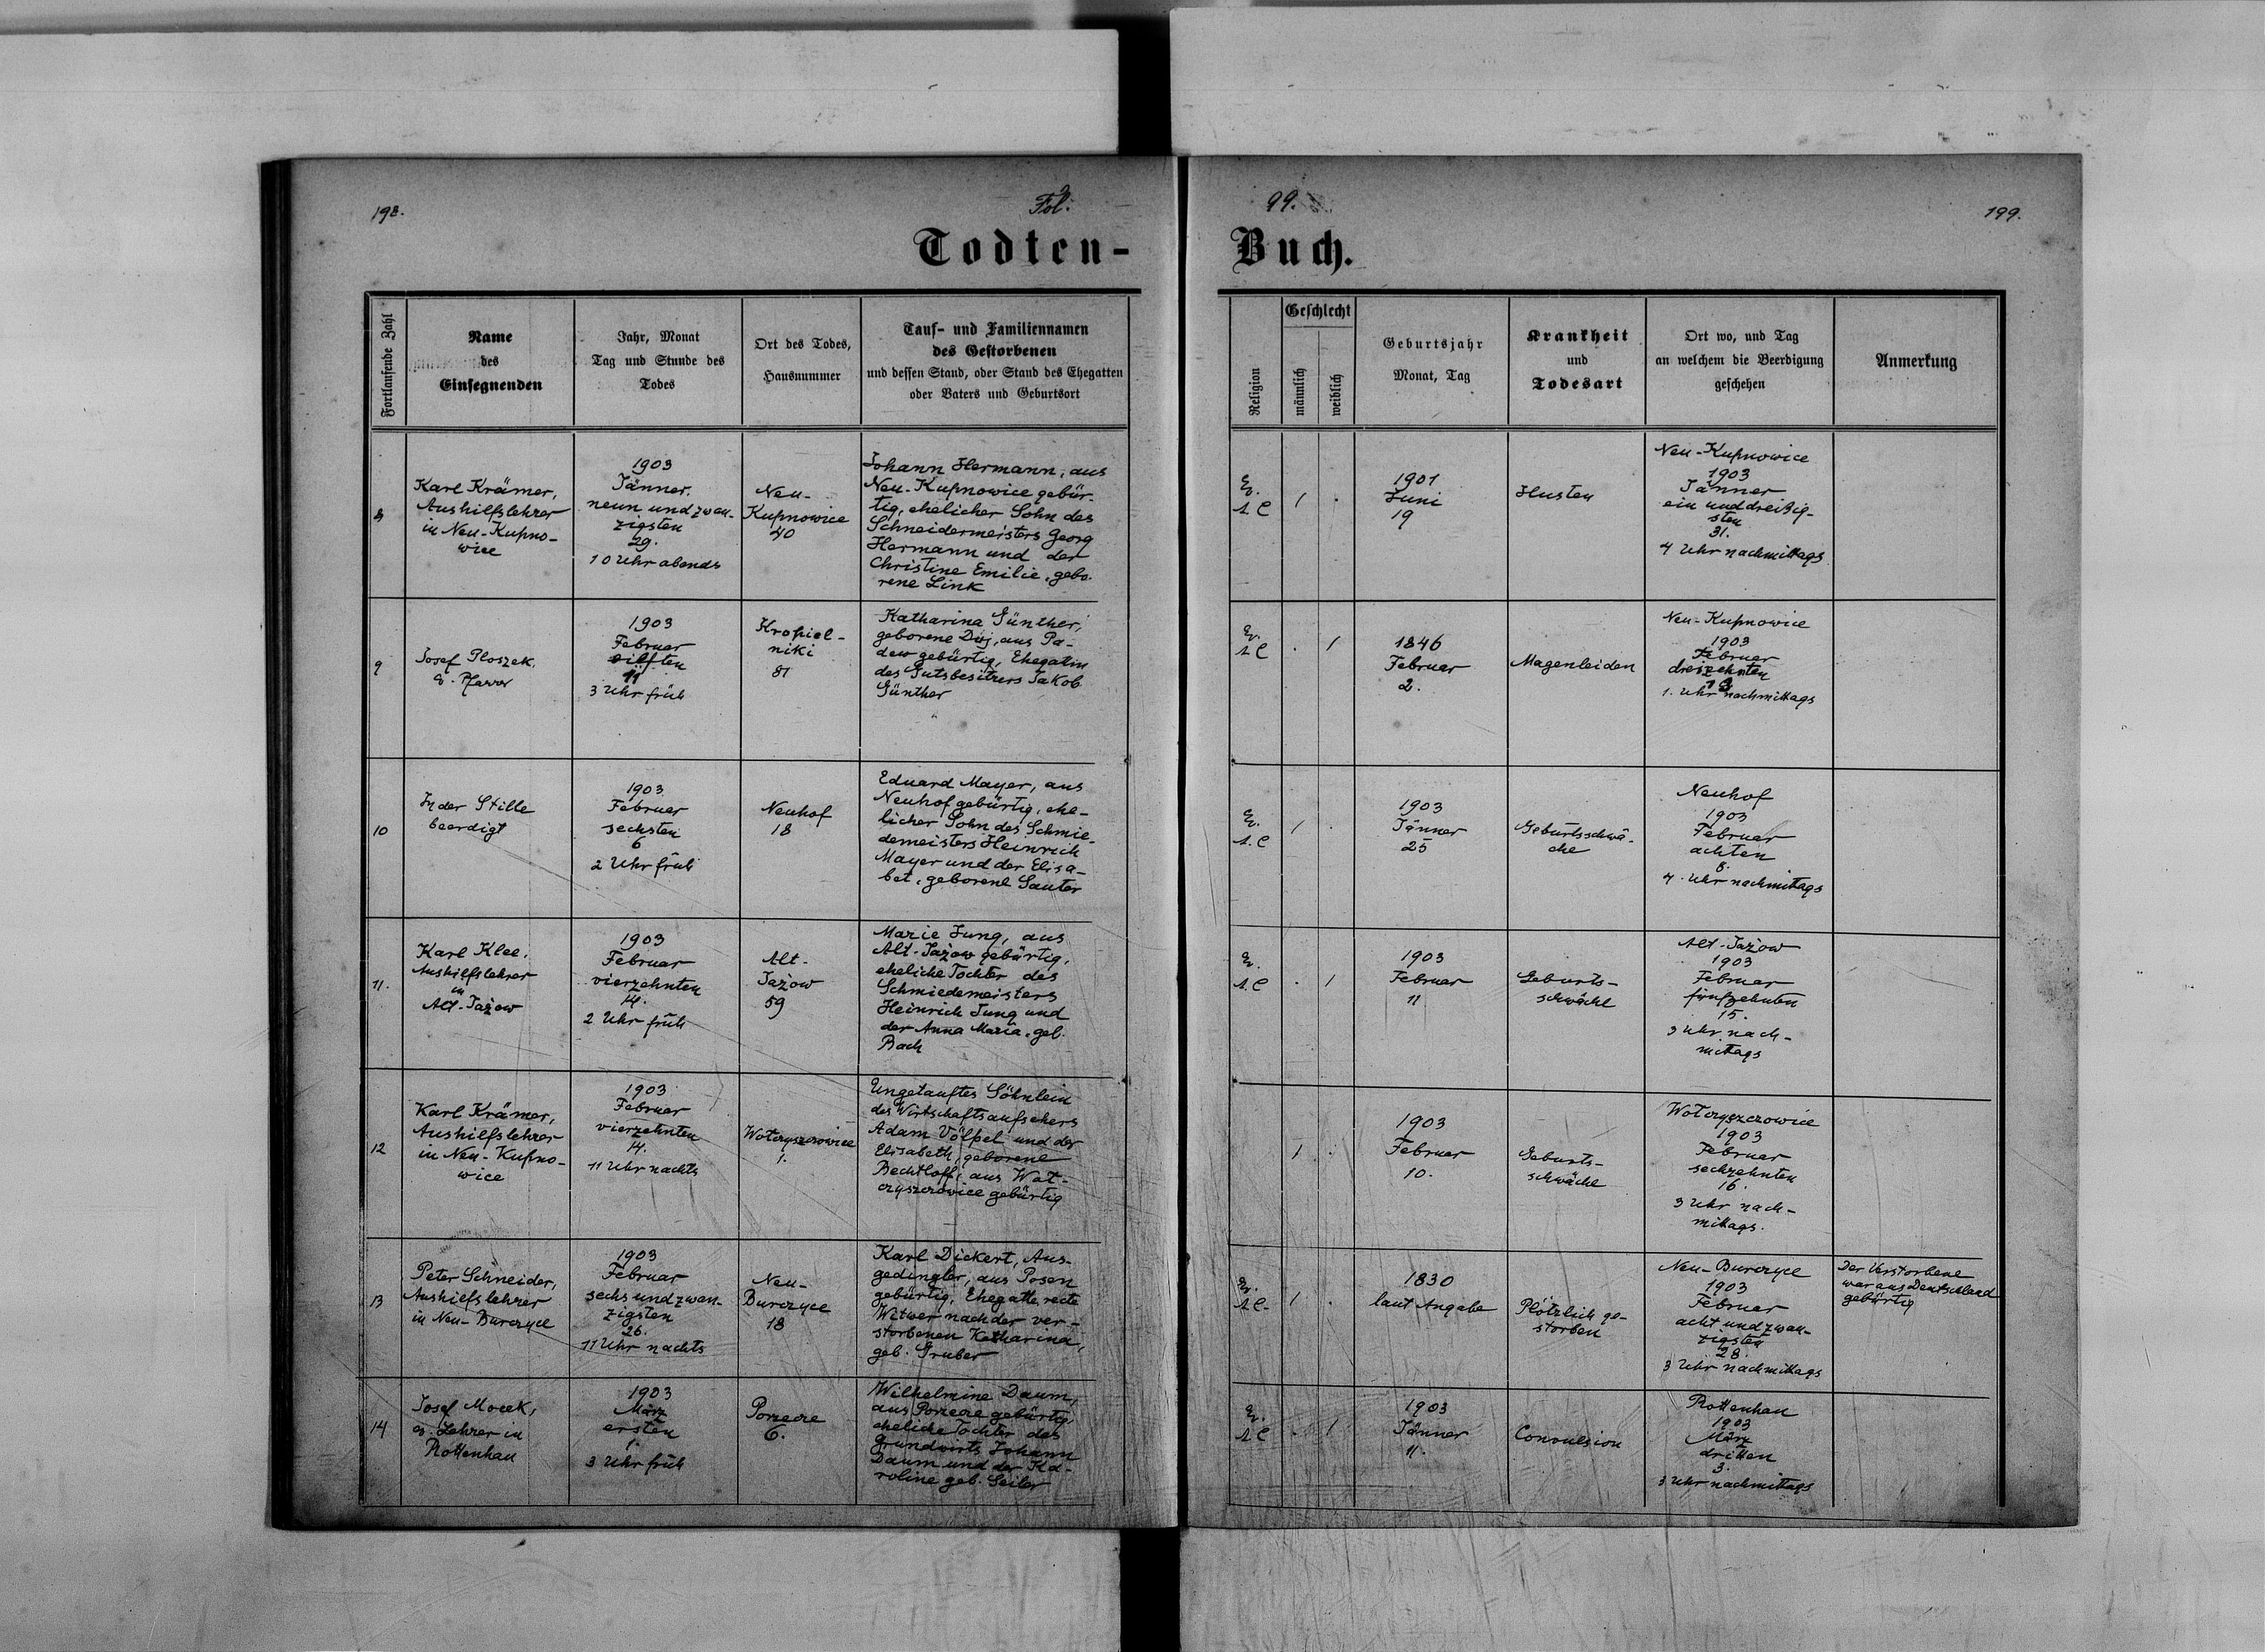 198.
Fol.
99.
199.
Todten-
Buch.
Fortlaufende Zahl
Name
des
Einsegnenden
Jahr, Monat
Tag und Stunde des
Todes
Ort des Todes,
Hausnummer
Tauf- und Familiennamen
des Gestorbenen
und dessen Stand, oder Stand des Ehegatten
oder Vaters und Geburtsort
Religion
Geschlecht
männlich
weiblich
Geburtsjahr
Monat, Tag
Krankheit
und
Todesart
Ort wo, und Tag
an welchem die Beerdigung
geschehen
Anmerkung
8
Karl Krämer,
Aushilfslehrer
in Neu-Kupno-
wice
1903
Jänner.
neun und zwan-
zigsten
29.
10 Uhr abends
Neu-
Kupnowice
40
Johann Hermann, aus
Neu-Kupnowice gebür-
tig, ehelicher Sohn des
Schneidermeisters Georg
Hermann und der
Christine Emilie, gebo-
rene Link
Ev.
A.C
1
.
1901
Juni
19
Husten
Neu-Kupnowice
1903
Jänner
ein und dreißig-
sten
31.
4 Uhr nachmittags
9
Josef Ploszek,
ev. Pfarrer
1903
Februar
eilften
11
3 Uhr früh
Kropiel-
niki
81
Katharina Günther,
geborene aus Pa-
dew gebürtig, Ehegatin
des Gutsbesitzers Jakob
Günther
Ev.
A.C
.
1
1846
Februar
2.
Magenleiden
Neu-Kupnowice
1903
Februar
dreizehnten
13
1. Uhr nachmittags
10
In der Stille
beerdigt
1903
Februar
sechsten
6
2 Uhr früh
Neuhof
18
Eduard Mayer, aus
Neuhof gebürtig, ehe-
licher Sohn des Schmie-
demeisters Heinrich
Mayer und der Elisa-
bet, geborene Sauter
Ev.
A.C
1
.
1903
Jänner
25
Geburtsschwä-
che
Neuhof
1903
Februar
achten
8.
4. Uhr nachmittags
11.
Karl Klee,
Aushilfslehrer
in
Alt-Jażow
1903
Februar
vierzehnten
14.
2 Uhr früh
Alt-
Jażow
59
Marie Jung, aus
Alt-Jażow gebürtig,
eheliche Tochter des
Schmiedemeisters
Heinrich Jung und
der Anna Maria, geb.
Bach
Ev.
A.C
.
1
1903
Februar
11
Geburts-
schwäche
Alt-Jażow
1903
Februar
fünfzehnten
15.
3 Uhr nach-
mittags
12
Karl Krämer,
Aushilfslehrer
in Neu-Kupno-
wice
1903
Februar
vierzehnten
14.
11 Uhr nachts
Wołczyszczowice
1.
Ungetauftes Söhnlein
des Wirtschaftsaufsehers
Adam Völpel und der
Elisabeth, geborene
Bechtloff, aus Woł-
czyszczowice gebürtig
1
.
1903
Februar
10.
Geburts-
schwäche
Wołczyszczowice
1903
Februar
sechzehnten
16.
3 Uhr nach-
mittags.
13
Peter Schneider,
Aushilfslehrer
in Neu-Burczyce
1903
Februar
sechs und zwan-
zigsten
26.
11 Uhr nachts
Neu-
Burczyce
18
Karl Dickert, Aus-
gedingler, aus Posen
gebürtig, Ehegatte, recte
Witwer nach der ver-
storbenen Katharina,
geb. Gruber
Ev.
A.C.
1
1830
laut Angabe
Plötzlich ge-
storben
Neu-Burczyce
1903
Februar
acht und zwan-
zigsten
28.
3 Uhr nachmittags
Der Verstorbene
war aus Deutschland
gebürtig
14
Josef Mocek,
ev. Lehrer in
Rottenhan
1903
März
ersten
1.
3 Uhr früh
Porzecze
6.
Wilhelmine Daum,
aus Porzecze gebürtig,
eheliche Tochter des
Grundwirts Johann
Daum und der Ka-
roline geb. Seiler
Ev.
A.C
.
1
1903
Jänner
11.
Convulsion
Rottenhan
1903
März
dritten
3.
3 Uhr nachmittags